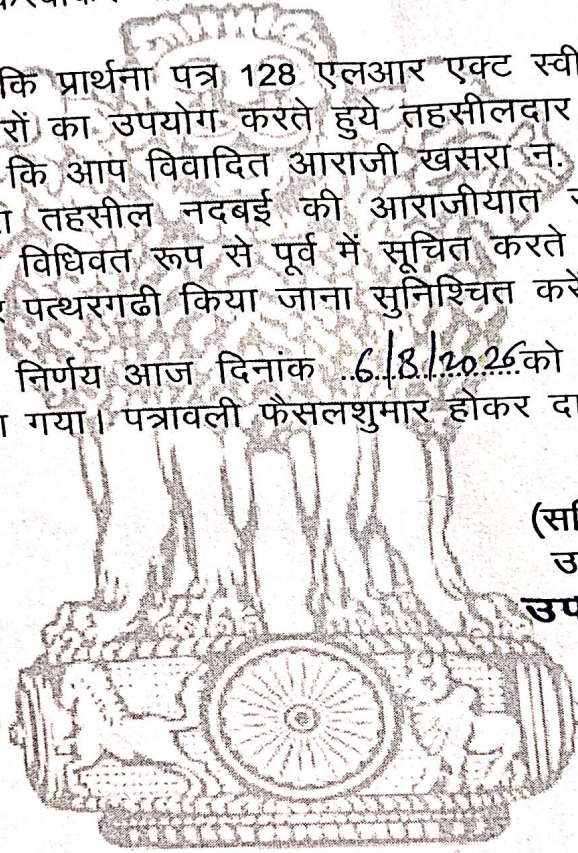 कि प्रार्थना पत्र 128 एलआर एक्ट स्वी
रों का उपयोग करते हुये तहसीलदार
कि आप विवादित आराजी खसरा न.
तहसील नदबई की आराजीयात
विधिवत रूप से पूर्व में सूचित करते
पत्थरगढी किया जाना सुनिश्चित करें
निर्णय आज दिनांक 6/8/2026 को
गया। पत्रावली फैसलशुमार होकर दा
(स
उ
उप